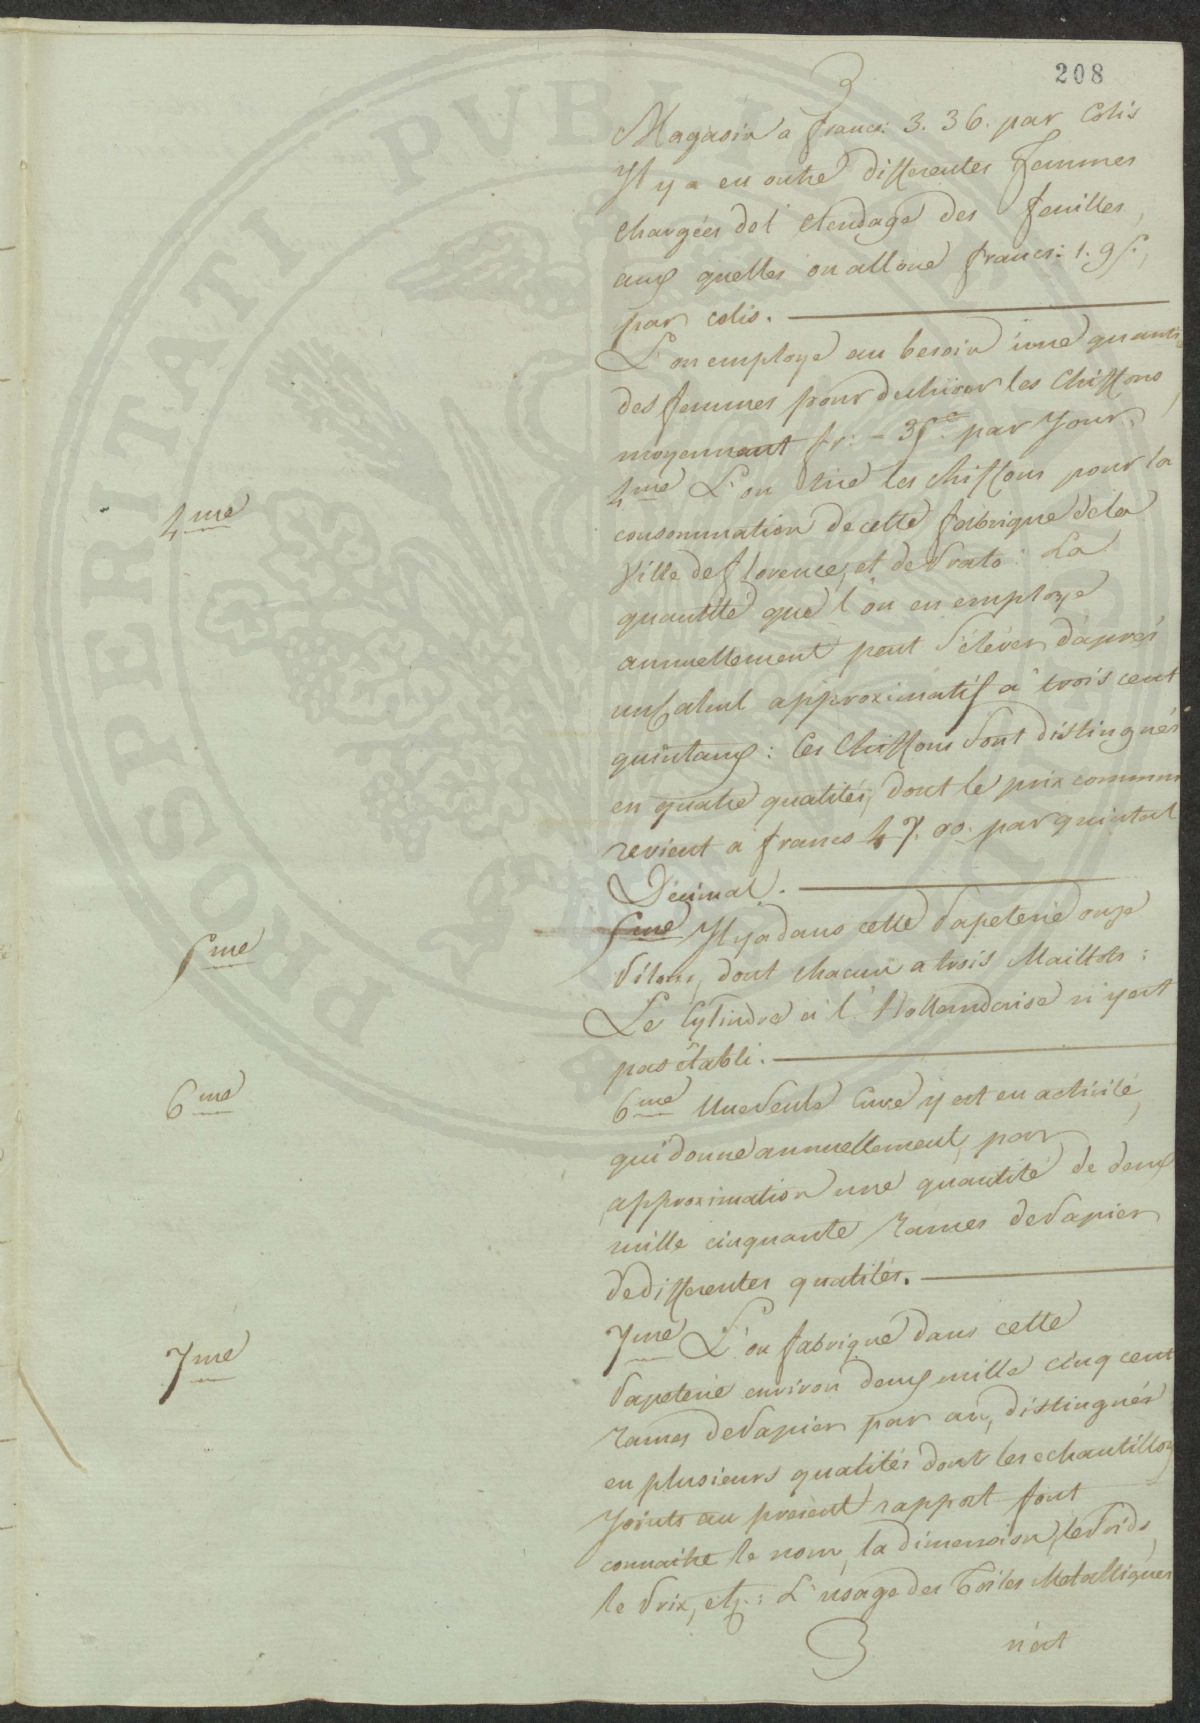 208
3
Magasin a francs: 3. 36. par Colis
Il y a en outre differentes femmes
chargées de l'etendage des feuilles,
aux quelles on alloue francs: 1. 95.,
par colis.
L'on employe au besoin une quantité
des femmes pour dechirer les Chiffons,
moyennant fr: - 35.c par Jour.
4me
4me L'on tire les chiffons pour la
consommation de cette fabrique de la
Ville de florence, et de Prato: La
quantité que l'on en employe
annuellement peut s'élever d'aprés
un Calcul approximatif a trois cent
quintaux: Ces Chiffons sont distingués
en quatre qualités, dont le prix commun
revient a francs 47. 90. par quintal
Décimal.
5me
5me Il y a dans cette Papeterie onze
Piloni, dont chacun a trois Maillots:
Le Cylindre a l'Hollandaise n'y est
pas établi.
6me
6me Une seule Cuve y est en activité,
qui donne annuellement, par
approximation une quantité de deux
mille cinquante rames de Papier
de differentes qualités.
7me
7me L'on fabrique dans cette
Papeterie environ deux mille cinq cent
rames de Papier par an, distingués
en plusieurs qualités dont les echantillons
Joints au present rapport font
connaitre le nom, la dimension, le Poids,
le Prix, etc.: L'usage des Toiles Metalliques
n'est
PROSPERITATI PVBLI